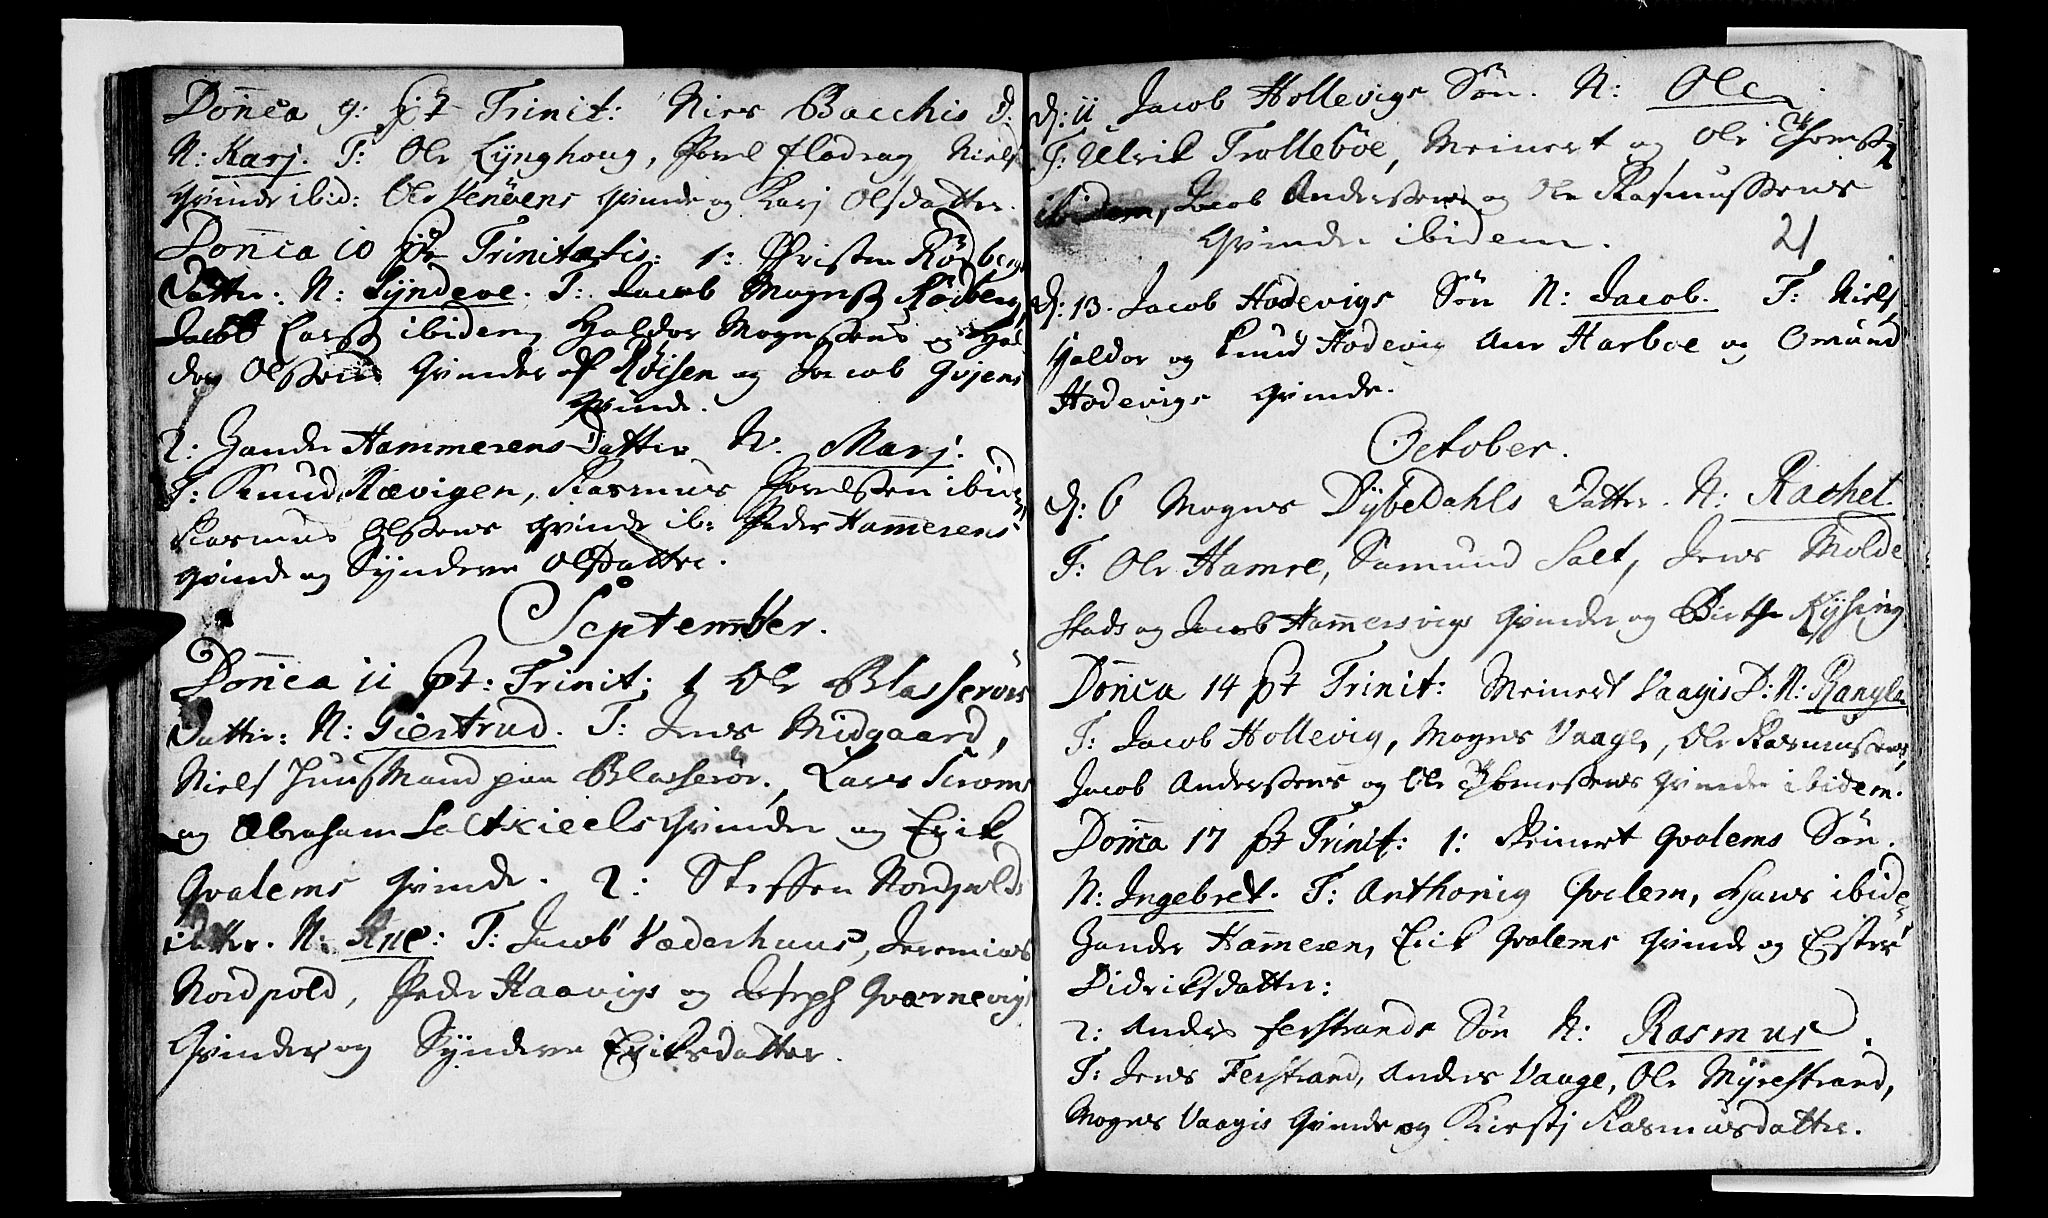 Don̅ica 9: pt Trinit: Niels Bacchis D.
N: Karj. T: Ole Lynghoug, Povel flodrag, Niels
qvinde ibid: Ole Venöens qvinde og Karj Olsdatter.
Don̅ica 10 pt Trinitatis: 1: Christen Rödbergs
Datter. N: Syndeve. T: Jacob Mogenss Rödberg,
Jacob Larss ibidem, Haldor Mogenssens og Hal
dor Olssens qvinder af Röisen og Jacob Gvjens
qvinde.
2: Zander Hammerens Datter N. Marj.
T: Knud Rævigen, Rasmus Povelssen ibid
Rasmus Olssens qvinde ib: Peder Ham̅erens
qvinde og Syndeve Olsdatter.
September.
Don̅ica 11 pt: Trinit: 1 Ole Blasserörs
Datter: N: Giertrud. T: Jens Midgaard,
Niels Huusmand paa Blasserör, Lars Ströms
og Abraham Saltkieels qvinder og Erik
Qvalems qvinde. 2: Steffen Nordpolds
Datter. N: Ane: T: Jacob Væderhuus, Jeremias
Nordpold, Peder Haavigs og Joseph Qvarnevigs
qvinder og Syndeve Eriksdatter.
d: 11 Jacob Hollevigs Sön. N: Ole.
T: Ulrik Trolleböe, Meinert og Ole Thomss
ibidem, Jacob Anderssens og Ole Rasmussens
qvinder ibidem. 21
d: 13. Jacob Hodevigs Sön N: Jacob. T: Niels,
Haldor og Knud Hodevig Ane Harboe og Omund
Hodevigs qvinde.
October.
d: 6 Mogens Dybedahls Datter. N: Rachel
T: Ole Hamre, Samund Salt, Jens Molde
stads og Jacob Ham̅ersvigs qvinder og Birthe Rysing
Don̅ica 14 pt Trinit: Meinert Vaagis D: N: Rangla
T: Jacob Hollevig, Mogens Vaage, Ole Rasmussens,
Jacob Anderssens og Ole Thomessens qvinder ibidem.
Don̅ica 17 pt Trinit: 1: Reinert Qvalems Sön.
N: Ingebret. T: Anthonig Qvalem, Hans ibide
Zander Ham̅eren, Erik Qvalems qvinde og Ester
Didriksdatter:
2: Anders Ferstrands Sön N: Rasmus.
T: Jens Ferstrand, Anders Vaage, Ole Myrestrand,
Mogens Vaagis qvinde og Kirstj Rasmusdatter.